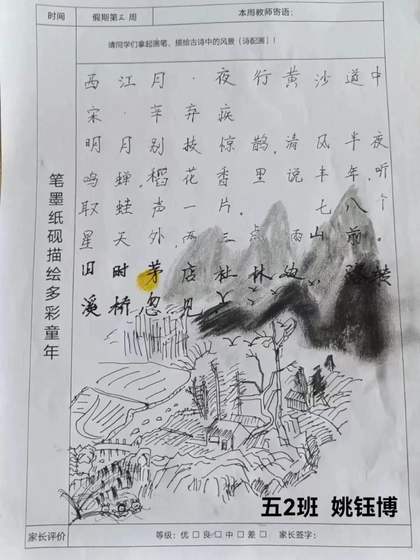 时间 假期第三周 本周教师寄语：
请同学们拿起画笔、描绘古诗中的风景（诗配画）！
笔墨纸砚描绘多彩童年
西江月·夜行黄沙道中
宋·辛弃疾
明月别枝惊鹊,清风半夜
鸣蝉,稻花香里说丰年,听
取蛙声一片.七八个
星天外,两三点雨山前.
旧时茅店社林边,路转
溪桥忽见.
五2班 姚钰博
家长评价 等级：优□良□中□差□ 家长签字：